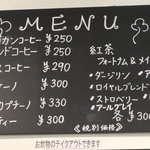 MENU
カンコーヒー ¥250
ンドコーヒー ¥250
スコーヒー ¥290
ーノ ¥300
プチーノ ¥300
ティー ¥300
紅茶
フォートナム&メイ
・ダージリン
・ロイヤルブレンド
・ストロベリー
・アールグレイ
各 ¥300
≪税別価格≫
お飲物のテイクアウトできます